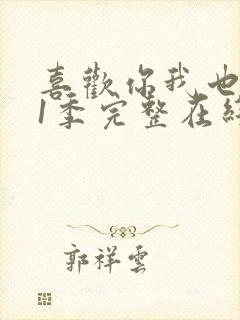 喜歡你我也
1季完整在
郭祥雲